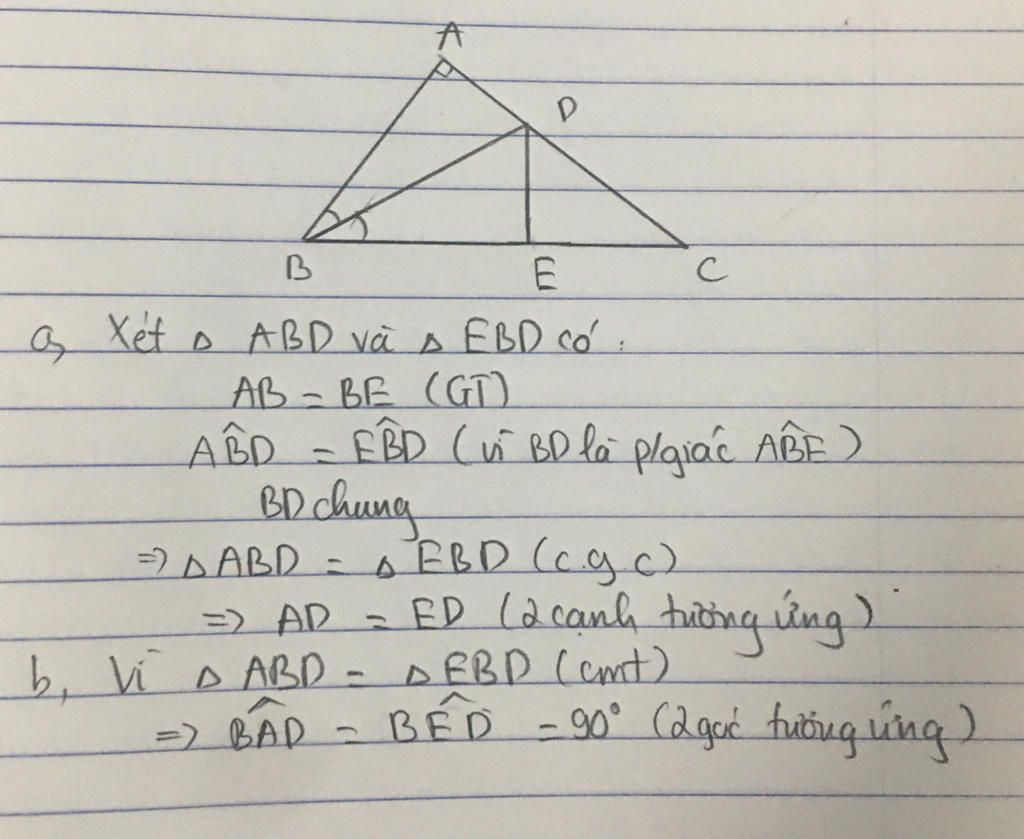 A
D
B
E
C
a, Xét △ ABD và △ EBD có:
AB = BE (GT)
AB̂D = EB̂D (vì BD là p/giác AB̂E)
BD chung
=> △ ABD = △ EBD (c.g.c)
=> AD = ED (2 cạnh tương ứng)
b, Vì △ ABD = △ EBD (cmt)
=> BÂD = BÊD = 90° (2 góc tương ứng)